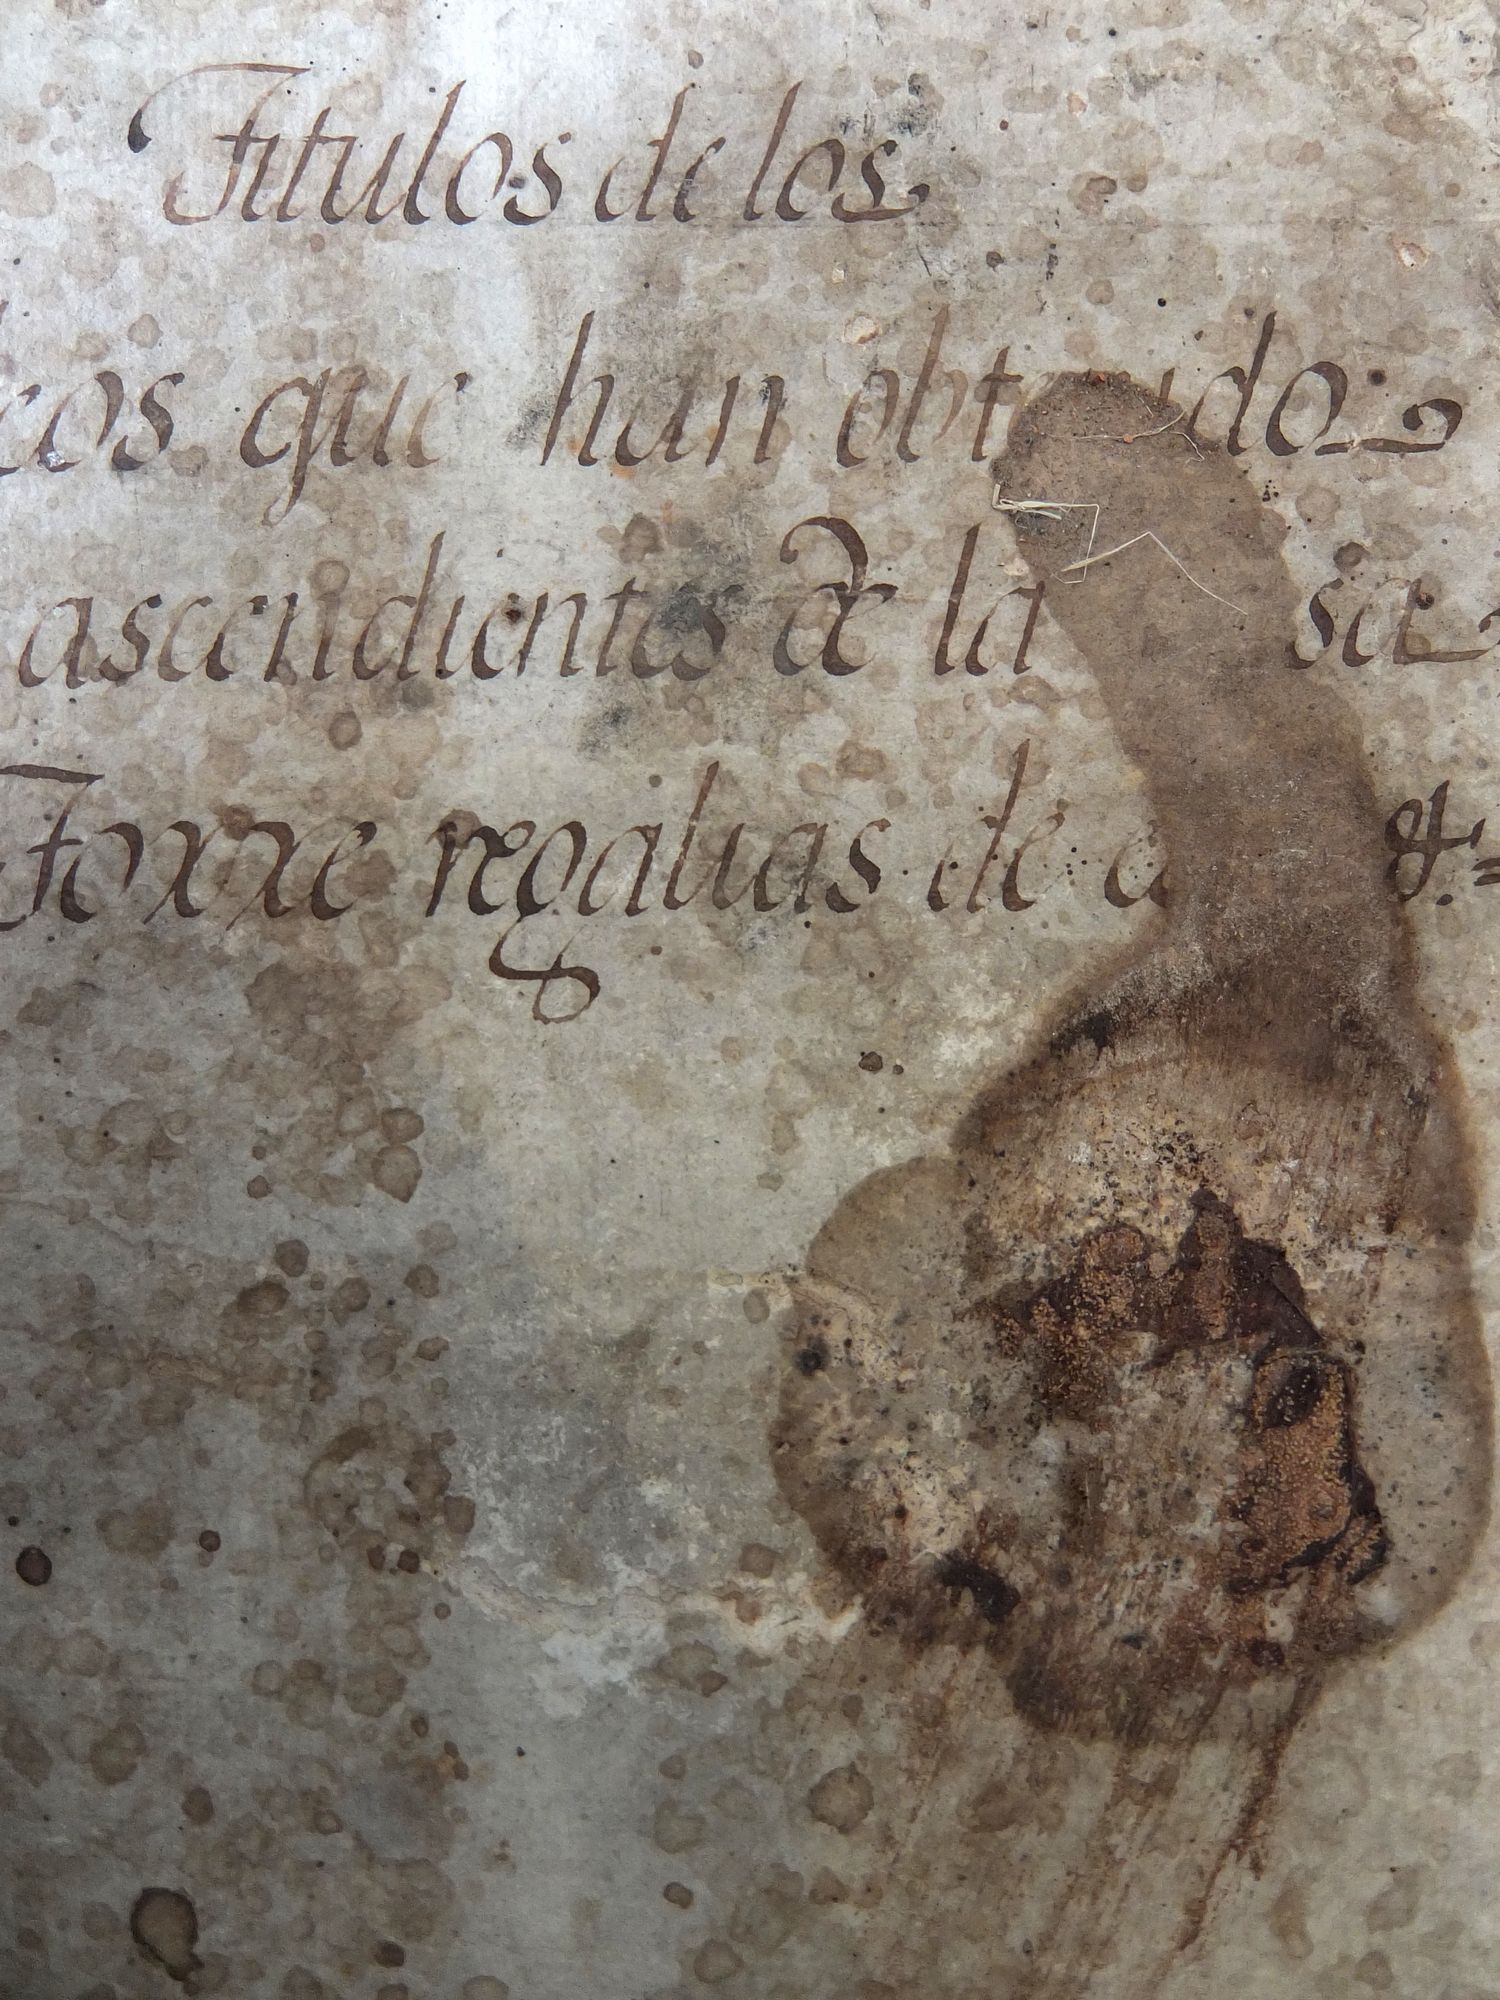 Titulos de los
cos que han obtenido
ascendientes de la sa
Torre regalias de &.=